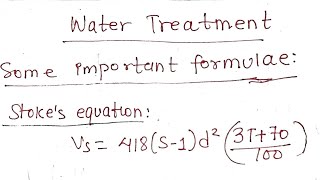 Water Treatment
Some important formulae:
Stoke's equation:
Vs = 418(S-1)d² (3T+70/100)